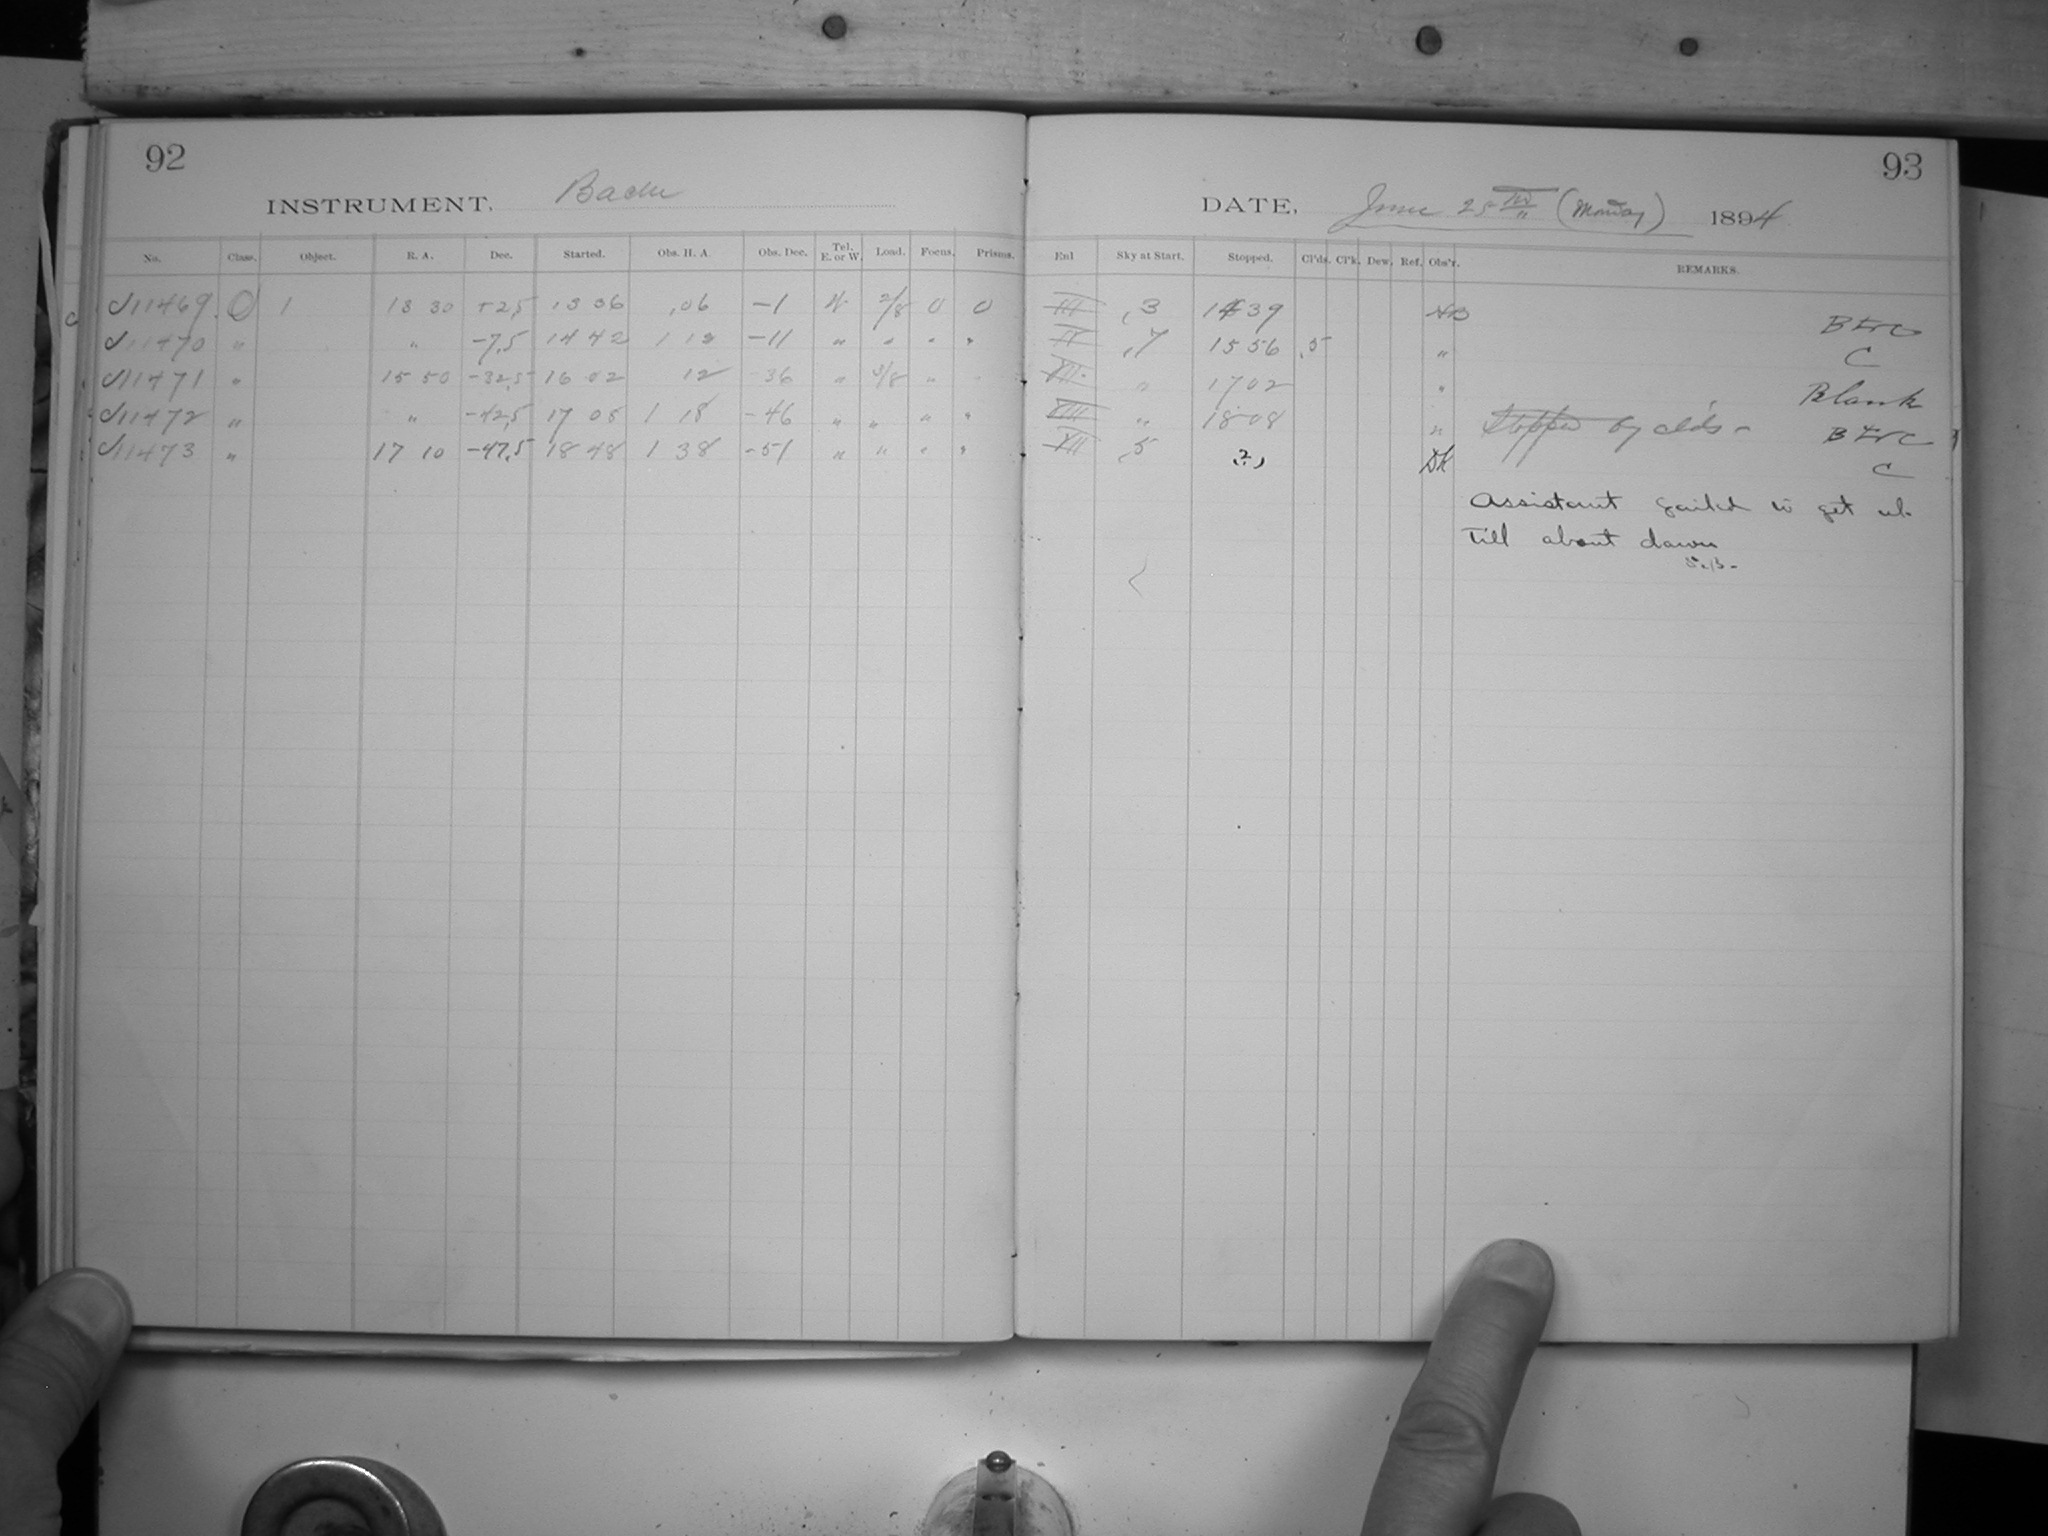 92
INSTRUMENT, Bache
No. Class. Object. R. A. Dec. Started. Obs. H. A. Obs. Dec. Tel. E. or W. Load. Focus. Prisms.
11469 O 1 13 30 +2,5 13 36 ,06 -1 W 2/8 0 0
11470 " " -7,5 14 42 1 12 -11 " " " "
11471 " 15 50 -32,5 16 02 12 -36 " 3/8 " "
11472 " " -42,5 17 05 1 18 -46 " " " "
11473 " 17 10 -47,5 18 48 1 38 -51 " " " "
93
DATE, June 25 (Monday) 1894
Enl Sky at Start. Stopped. Cl'ds. Cl'k. Dew. Ref. Obs'r. REMARKS.
,3 1439
,7 1556 ,5 " C
" 1702 " Blank
" 18 08 " Stopped by cl'ds -
XII ,5 (?) C
Assistant failed to get up
till about dawn
S.B.